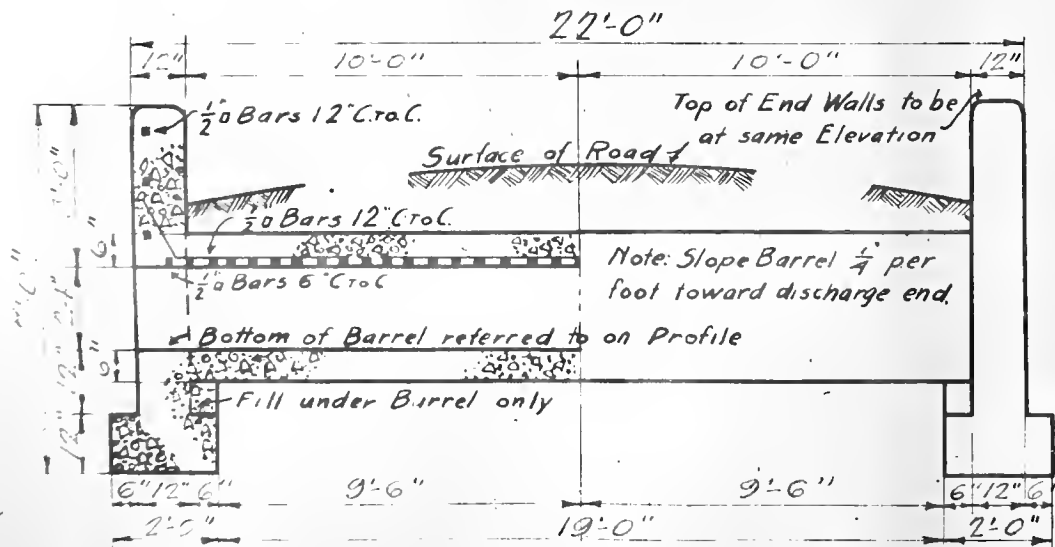 22'-0"
12" 10'-0" 10'-0" 12"
½"□ Bars 12" C.To.C.
Top of End Walls to be
at same Elevation
Surface of Road
½"□ Bars 12" C.To C.
6"
½"□ Bars 6" C To C
Note: Slope Barrel ¼" per
foot toward discharge end.
Bottom of Barrel referred to on Profile
6"
Fill under Barrel only
12" 12"
6" 12" 6" 9'-6" 9'-6" 6" 12" 6"
2'-0" 19'-0" 2'-0"